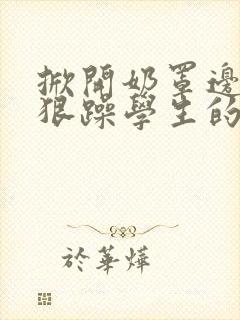 掀開奶罩邊
狠躁學生的
於華燁